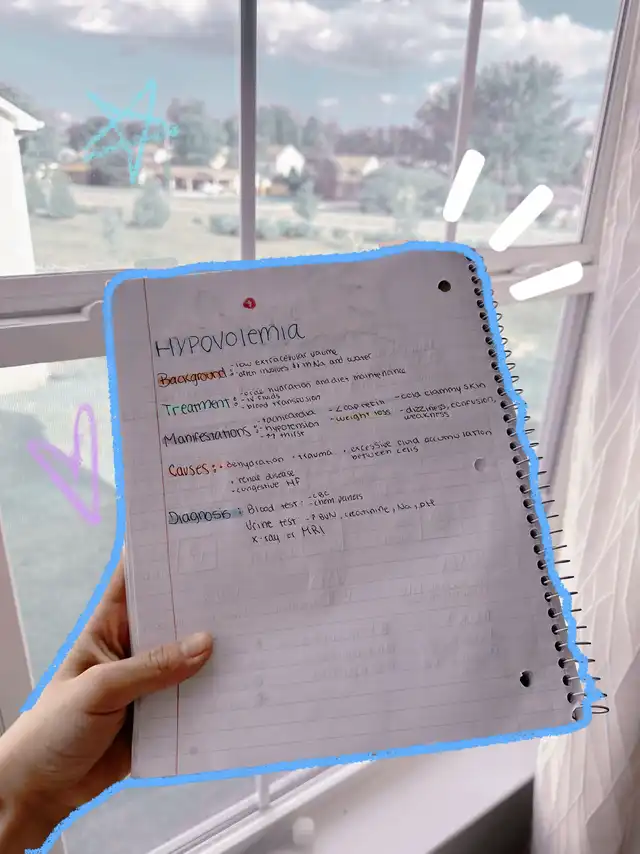 HYPOVOLEMIA
Background: - low extracellular volume
- often involves ↓↓ in Na and water
Treatment: - oral hydration and diet maintenance
- IV fluids
- blood transfusion
Manifestations: - tachycardia - ↓ cap refill - cold clammy skin
- hypotension - weight loss - dizziness, confusion,
- ↑↑ thirst weakness
Causes: • dehydration • trauma • excessive fluid accumulation
between cells
• renal disease
• congestive HF
Diagnosis: Blood test: - CBC
- chem panels
Urine test - ↑ BUN, creatinine, Na,
X-ray or MRI